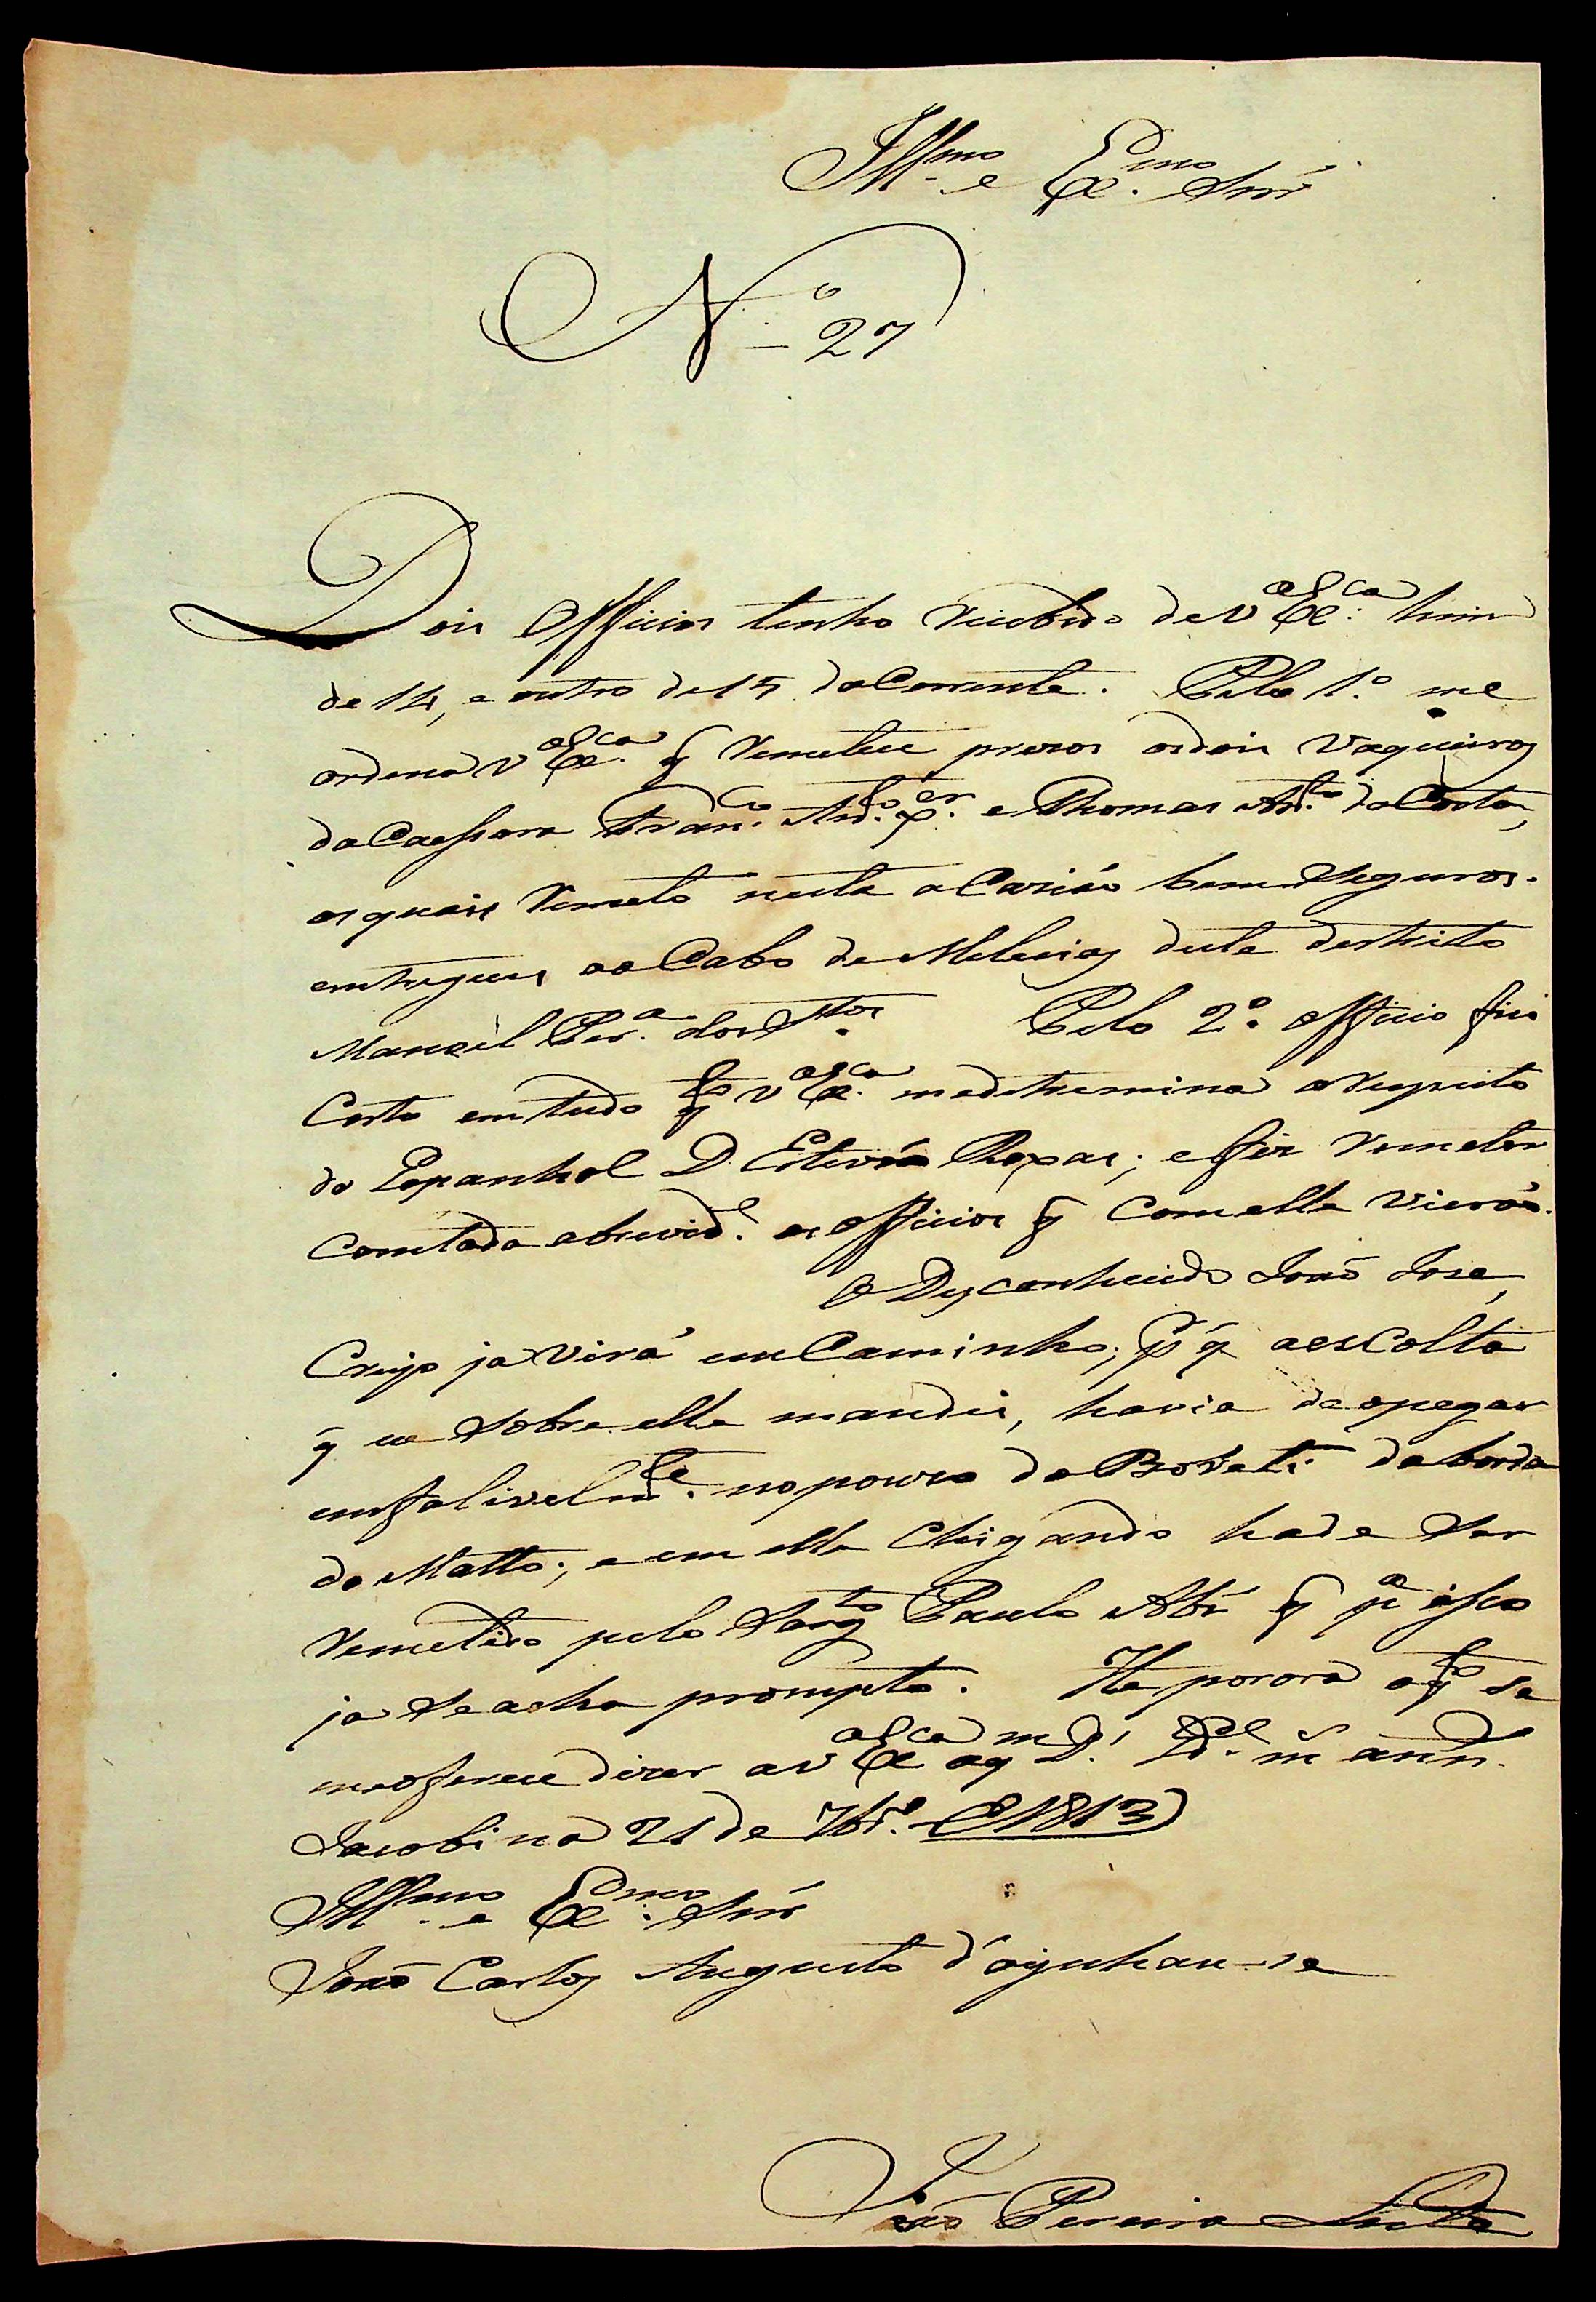 Ill.mo e Ex.mo Snr̃
N.o 27
Dois Officios tenho recebido de V Ex.ca hum
de 14, e outro de 17 do Corrente. Pelo 1.o me
ordena V Ex.ca q̃ remetece prezos os dois Vaqueiros
da Caessara Fran.co e Thomas da Costa,
os quais remeto nesta ocaziáo bem Seguros.
entregues ao Cabo de Melicias deste destrito
Manoel Per.a dos S.tos Pelo 2.o officio fico
Certo em tudo q.to V Ex.ca me detremina a respeito
do Espanhol D. Esteváo Roxas; e fis remeter
Com toda abrevid.e os officios q̃ Com elle vieráo.
O Desconhecido Joaõ Jose,
Cuijo ja virá em Caminho; p̃ q̃ aescolta
q̃ ue Sobre elle mandei, havia de o pegar
emfalivelm.te no pouzo da da borda
do Matto; e em elle Chigando hade Ser
remetido pelo Sarg.to Paulo q̃ p.a isso
ja Se acha prompto. He porora o q.to se
me oferece dizer a V Ex.ca a q̃ D.s G.de m.s ann.s
Jacobina 21 de 7br.o de 1813
Ill.mo e Ex.mo Snr̃
Joaõ Carlos Augusto d'oyenhau-se
Joaõ Pereira Leite